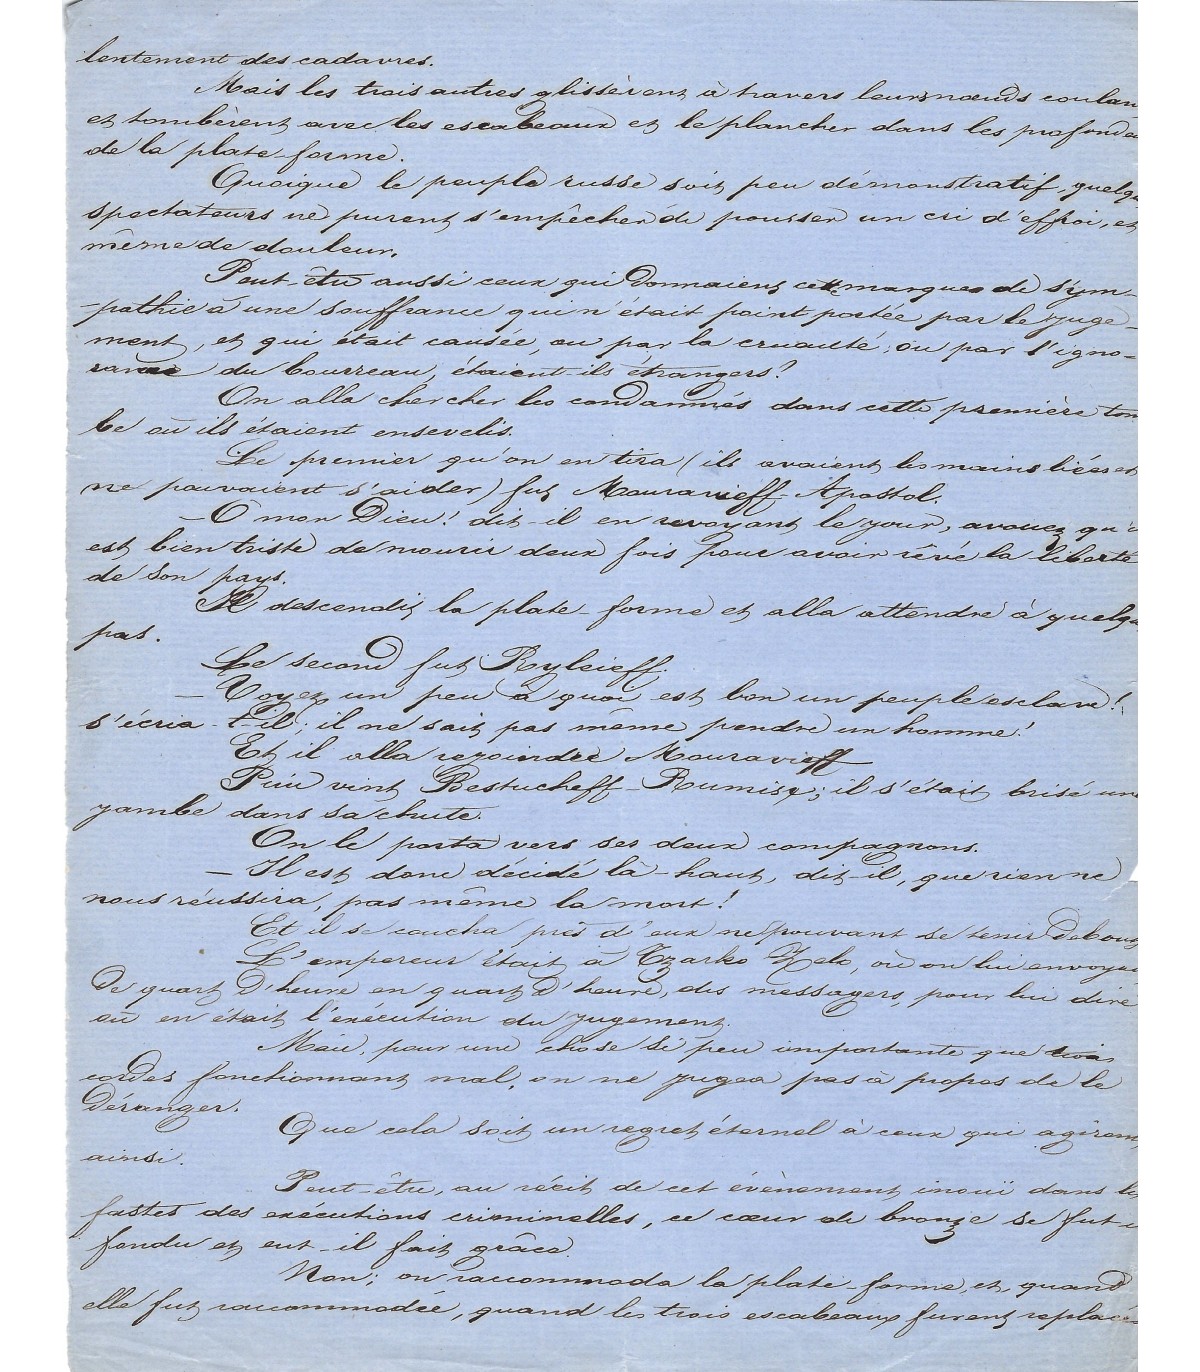 lentement des cadavres.
Mais les trois autres glissèrent à travers leurs nœuds coulan
et tombèrent avec les escabeaux et le plancher dans les profonde
de la plate-forme.
Quoique le peuple russe soit peu démonstratif, quelqu
spectateurs ne purent s'empêcher de pousser un cri d'effroi, et
même de douleur.
Peut-être aussi ceux qui donnaient cette marque de sym-
-pathie à une souffrance qui n'était point portée par le juge-
ment, et qui était causée, ou par la cruauté, ou par l'igno-
rance du bourreau, étaient-ils étrangers!
On alla chercher les condamnés dans cette première tom
be où ils étaient ensevelis.
Le premier qu'on en tira (ils avaient les mains liées et
ne pouvaient s'aider) fut Mouravieff-Apostol.
— O mon Dieu! dit-il en revoyant le jour, avouez qu'i
est bien triste de mourir deux fois pour avoir rêvé la liberté
de son pays.
Il descendit la plate-forme et alla attendre à quelqu
pas.
Le second fut Ryleieff.
— Voyez un peu à quoi est bon un peuple esclave!
s'écria-t-il; il ne sait pas même pendre un homme!
Et il alla rejoindre Mouravieff
Puis vint Bestucheff-Rumine; il s'était brisé une
jambe dans sa chute.
On le porta vers ses deux compagnons.
— Il est donc décidé là-haut, dit-il, que rien ne
nous réussira, pas même la mort!
Et il se coucha près d'eux ne pouvant se tenir debout,
L'empereur était à Tzarko Zelo, où on lui envoyai
de quart d'heure en quart d'heure, des messagers, pour lui dire
où en était l'exécution du jugement.
Mais, pour une chose si peu importante que trois
cordes fonctionnant mal, on ne jugea pas à propos de le
déranger.
Que cela soit un regret éternel à ceux qui agirent
ainsi.
Peut-être, au récit de cet évènement inouï dans les
fastes des exécutions criminelles, ce cœur de bronze se fut-i
fondu et eut-il fait grâce.
Non; on raccommoda la plate-forme, et, quand
elle fut raccommodée, quand les trois escabeaux furent replacé